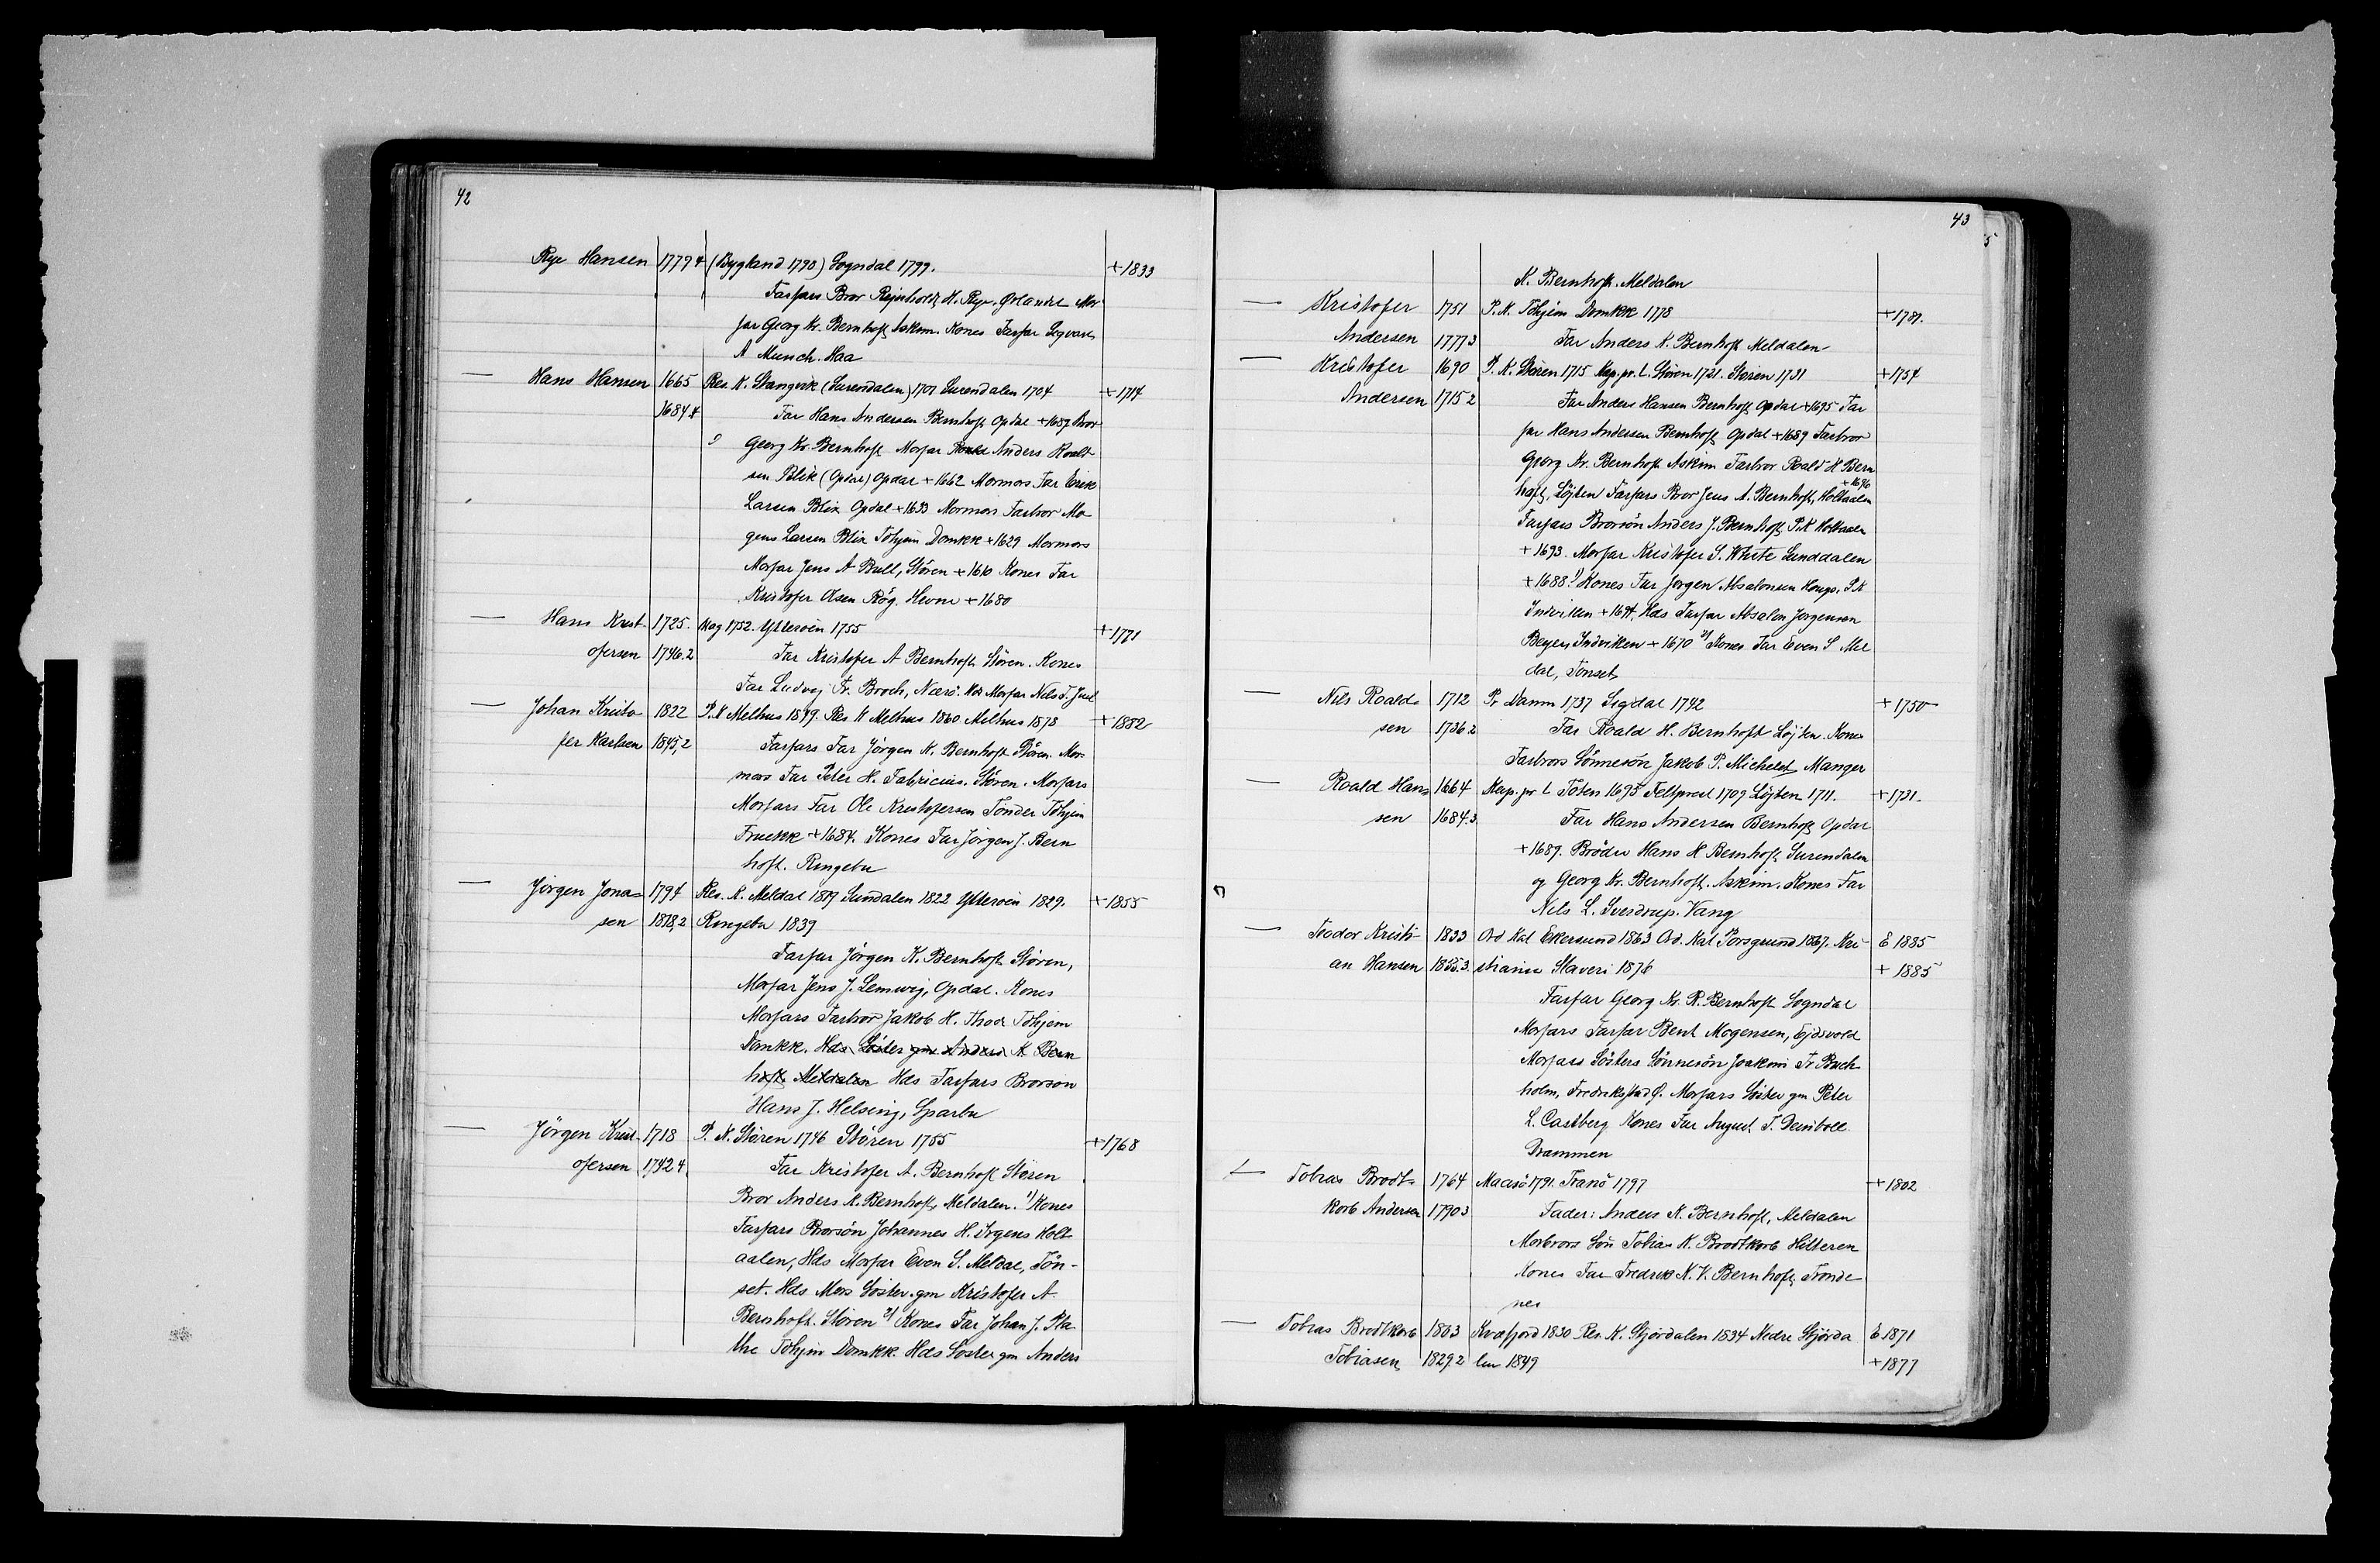 42
Rye Hansen 1777 4 (Bygland 1790) Sogndal 1799. +1833
Farfars Bror Rejnholdt H. Rye, Ørlandet Mor
far Georg Kr. Bernhoft Askim. Kones Farfar
A Munch. Haa
— Hans Hansen 1665 Res. K. Stangvik (Surendalen) 1701 Surendalen 1704 +1714
1684.4 Far Hans Andersen Bernhoft Opdal +1689 Bror
Georg Kr. Bernhoft Morfar Anders Roalt
sen Blik (Opdal) Opdal +1662 Mormors Far Erik
Larsen Blix Opdal +1633 Mormors Farbror Mo
gens Larsen Blix Tdhjem Domkk +1629 Mormors
Morfar Jens A Bull, Stören +1610 Kones Far
Kristofer Olsen Røg. Hevne +1680
— Hans Krist- 1725. Mag 1752. Ytterøen 1755 +1771
ofersen 1746.2 Far Kristofer A Bernhoft Stören. Kones
Far Ludvig Fr. Broch, Nærö. Hds Morfar Nils T. Juul
— Johan Kristo 1822 P.K Melhus 1849. Res K Melhus 1860 Melhus 1878 +1882
fer Karlsen 1845,2 Farfars Far Jörgen K. Bernhoft Stören. Mor-
mors Far Peter H. Fabricius. Stören. Morfars
Morfars Far Ole Kristofersen Tönder Tdhjem
Fruekk +1684. Kones Far Jörgen J. Bern
hoft. Ringebu
— Jörgen Jona= 1794 Res. K. Meldal 1819 Sundalen 1822 Ytterøen 1829. +1855
sen 1818,2 Ringebu 1839
Farfar Jörgen K. Bernhoft Stören,
Morfar Jens J. Lemvig, Opdal. Kones
Morfars Farbror Jakob H. Thode Tdhjem
Domkk. Hds Söster gm Anders K Bern
hoft Meldalen Hds Farfars Brorson
Hans J. Helsing, Sparbu
— Jörgen Krist- 1718 P. K. Stören 1746 Stören 1755 +1768
ofersen 1742 4 Far Kristofer A. Bernhoft Stören
Bror Anders K. Bernhoft, Meldalen. 1) Kones
Farfars Brorsön Johannes H. Irgens Holt
aalen, Hds Morfar Even S. Meldal, Tön-
set. Hds Mors Söster gm Kristofer A
Bernhoft. Stören 2) Kones Far Johan J. Pla
the Tdhjem Domkk. Hds Söster gm Anders
43
K. Bernhoft. Meldalen
— Kristofer 1751 P. K. Tdhjem Domkk 1778 +1781.
Andersen 1777 3 Far Anders K. Bernhoft Meldalen
— Kristofer 1690 P. K. Stören 1715 Kap. pr. L. Stören 1721. Stören 1731 +1754
Andersen 1715 2 Far Anders Hansen Bernhoft Opdal +1695 Far
far Hans Andersen Bernhoft Opdal +1689 Farbror
Georg Kr. Bernhoft Askim Farbror Roald H Bern
hoft, Löjten Farfars Bror Jens A. Bernhoft, Holtaalen +1696
Farfars Brorsön Anders J. Bernhoft P.K Holtaalen
+1693. Morfar Kristofer S. White Sunddalen
+1688 1) Kones Far Jörgen Absalonsen Kongs. P.K
Indviken +1694. Hds Farfar Absalon Jörgensen
Beyer, Indviken +1670 2) Kones Far Even S Mel
dal, Tönset
— Nils Roald= 1712 Pr Damm 1737 Sigdal 1742 +1750
sen 1736 2 Far Roald H. Bernhoft Löjten. Kones
Farbrors Sönnesön Jakob P. Michelet Manger
— Roald Han= 1664 Kap. pr L Toten 1695 Feltprest 1709 Löjten 1711. +1731.
sen 1684.3 Far Hans Andersen Bernhoft Opdal
+1689. Brödre Hans H Bernhoft Surendalen
og Georg Kr. Bernhoft. Askim. Kones Far
Nils L. Sverdrup. Vang
— Teodor Kristi- 1833 Ord Kat Ekersund 1863 Ord. Kat Porsgrund 1867. Kri- E 1885
an Hansen 1855.3. stiania Slaveri 1876 +1885
Farfar Georg Kr. R. Bernhoft Sogndal
Morfars Farfar Bent Mogensen, Ejdsvold
Morfars Sösters Sönnesön Joakim Fr Buch
holm, Fredrikstad O. Morfars Söster gm Peter
L. Castberg Kones Far August T. Deinboll
Drammen
— Tobias Brodt= 1764 Maasö 1791. Tranö 1797 +1802
korb Andersen 1790 3 Fader: Anders K. Bernhoft, Meldalen
Morbrors Sön Tobias K. Brodtkorb Hitteren
Kones Far Fredrik K. V. Bernhoft, Tronde
nes
— Tobias Brodtkorb 1803 Kvæfjord 1830 Res. K. Stjördalen 1834 Nedre Stjörda E 1871
Tobiasen 1829,2 len 1849 +1877